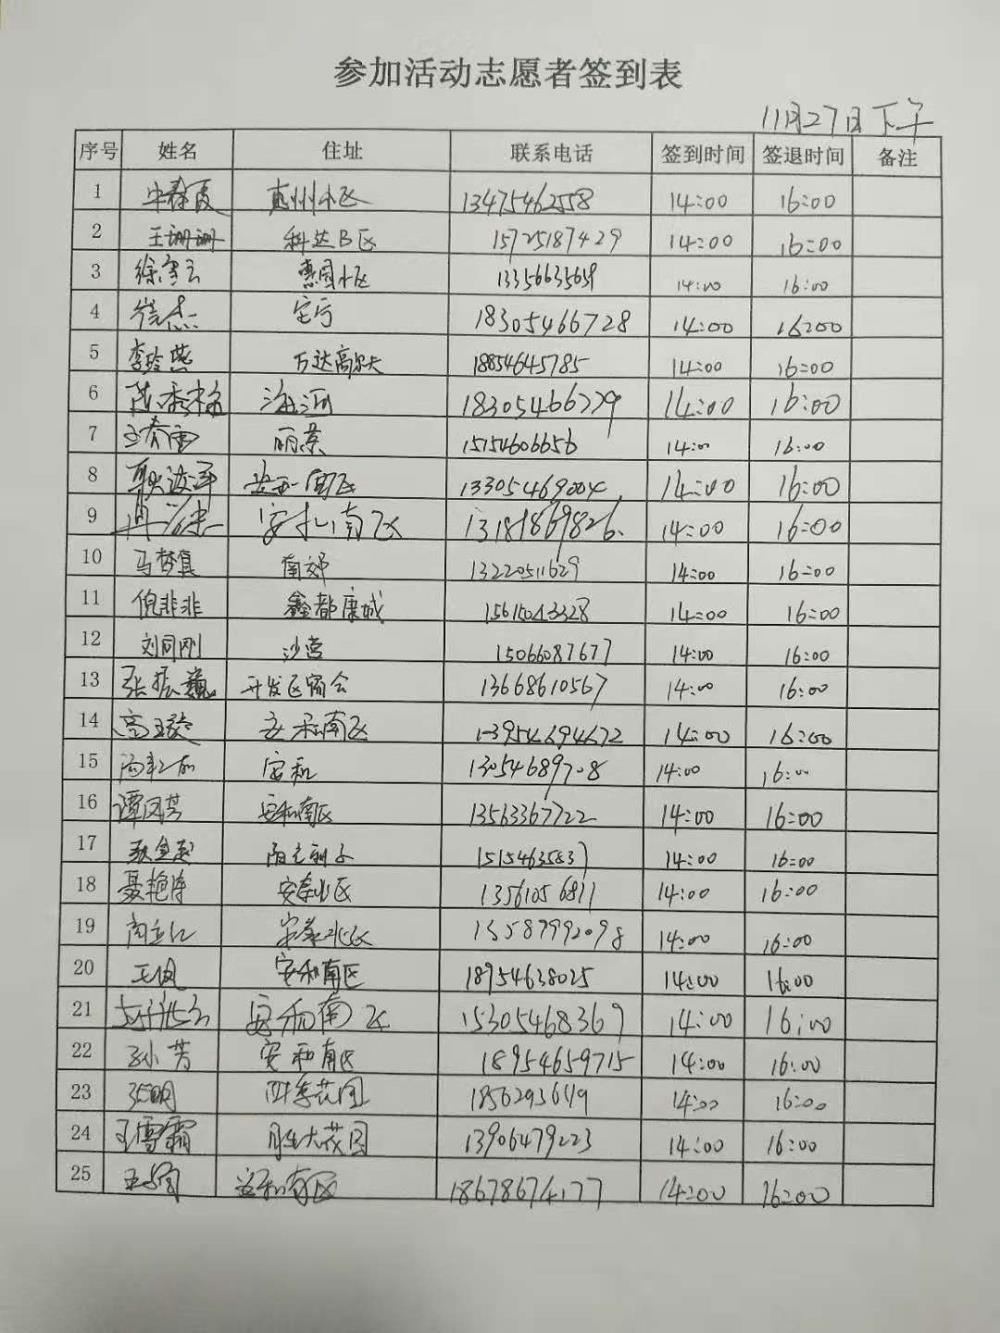 参加活动志愿者签到表
11月27日下午
序号 姓名 住址 联系电话 签到时间 签退时间 备注
1 惠州小区 13475462558 14:00 16:00
2 王珊珊 科达B区 15725187429 14:00 16:00
3 惠园小区 13356635659 14:00 16:00
4 崔杰 18305466728 14:00 16:00
5 李玲燕 万达高尔夫 18854645785 14:00 16:00
6 18305466779 14:00 16:00
7 王春雷 丽景 15154606656 14:00 16:00
8 南区 13305469004 14:00 16:00
9 南区 13181869826 14:00 16:00
10 马梦真 南郊 13220511629 14:00 16:00
11 倪非非 鑫都康城 14:00 16:00
12 刘同刚 沙营 15066087677 14:00 16:00
13 张振巍 开发区 13668610567 14:00 16:00
14 安和南区 13954694672 14:00 16:00
15 安和 13054689708 14:00 16:00
16 谭凤芳 安和南区 13563367722 14:00 16:00
17 15154635837 14:00 16:00
18 聂艳涛 安泰北区 13561056811 14:00 16:00
19 安泰北区 13587992098 14:00 16:00
20 安和南区 18954638025 14:00 16:00
21 安和南区 15305468369 14:00 16:00
22 孙芳 安和南区 18954659715 14:00 16:00
23 张明 四季花园 14:00 16:00
24 王雪霜 胜大花园 13906479223 14:00 16:00
25 安和南区 18678674177 14:00 16:00